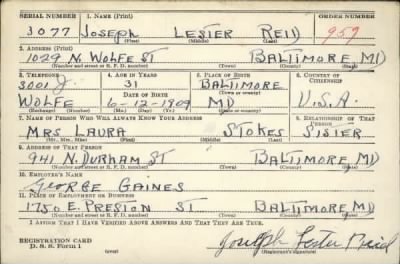 SERIAL NUMBER 1. NAME (Print) ORDER NUMBER
3077 JOSEPH LESTER REID 957
(First) (Middle) (Last)
2. ADDRESS (Print)
1029 N. WOLFE ST BALTIMORE MD
(Number and street or R. F. D. number) (Town) (County) (State)
3. TELEPHONE 4. AGE IN YEARS 5. PLACE OF BIRTH 6. COUNTRY OF CITIZENSHIP
3001 J 31 BALTIMORE
DATE OF BIRTH (Town or county)
WOLFE 6-12-1909 MD U.S.A.
(Exchange) (Number) (Mo.) (Day) (Yr.) (State or country)
7. NAME OF PERSON WHO WILL ALWAYS KNOW YOUR ADDRESS 8. RELATIONSHIP OF THAT PERSON
MRS LAURA STOKES SISTER
(Mr., Mrs., Miss) (First) (Middle) (Last)
9. ADDRESS OF THAT PERSON
941 N. DURHAM ST BALTIMORE MD
(Number and street or R. F. D. number) (Town) (County) (State)
10. EMPLOYER'S NAME
GEORGE GAINES
11. PLACE OF EMPLOYMENT OR BUSINESS
1750 E. PRESTON ST BALTIMORE MD
(Number and street or R. F. D. number) (Town) (County) (State)
I AFFIRM THAT I HAVE VERIFIED ABOVE ANSWERS AND THAT THEY ARE TRUE.
REGISTRATION CARD
D. S. S. Form 1 (over) Joseph Lester Reid
(Registrant's signature)